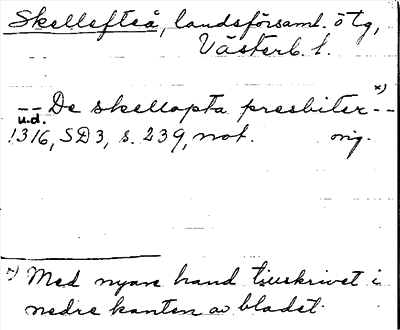 Skellefteå, landsförsaml. ötg,
Västerb. l.
-- De skellopta presbiter x) --
u.d.
1316, SD3, s. 239, not. orig.
x) Med nyare hand tjuskrivet i
nedre kanten av bladet.